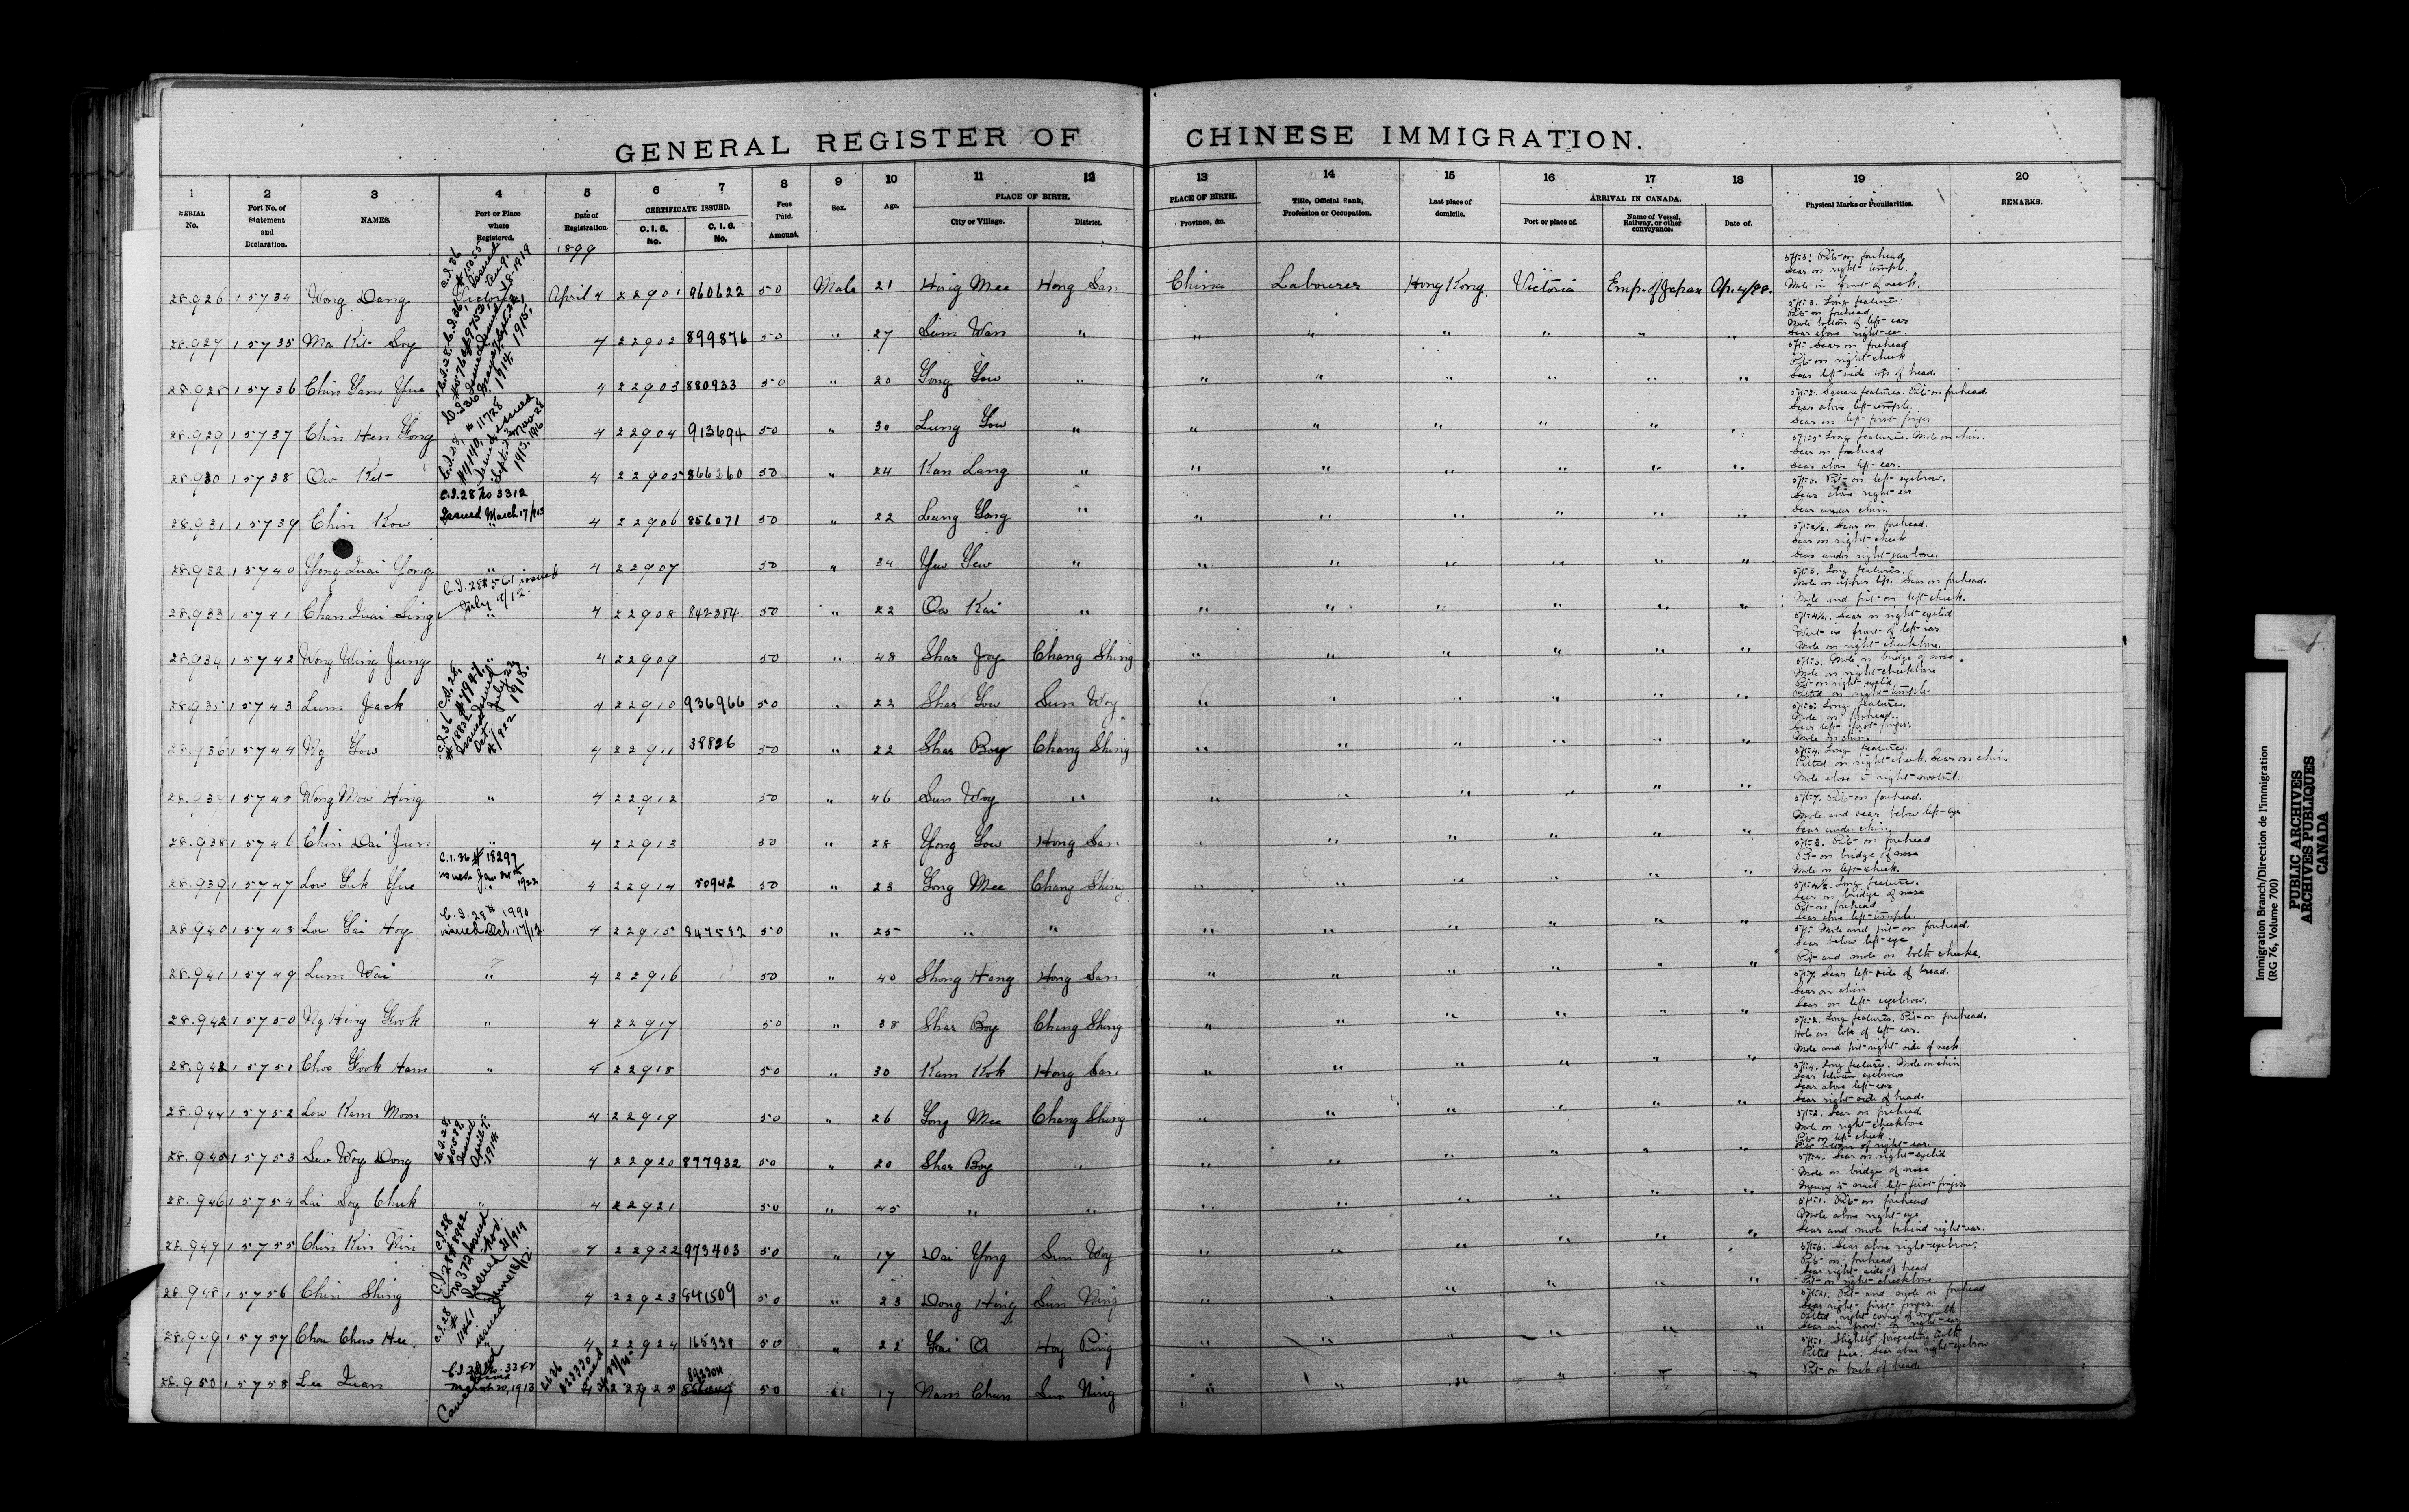 GENERAL REGISTER OF CHINESE IMMIGRATION.
1 2 3 4 5 6 7 8 9 10 11 12 13 14 15 16 17 18 19 20
SERIAL No. Port No. of Statement and Declaration. NAMES. Port or Place where Registered. Date of Registration. CERTIFICATE ISSUED. C. I. 5. No. C. I. 6. No. Fees Paid. Amount. Sex. Age. PLACE OF BIRTH. City or Village. District. PLACE OF BIRTH. Province, &c. Title, Official Rank, Profession or Occupation. Last place of domicile. ARRIVAL IN CANADA. Port or place of. Name of Vessel, Railway, or other conveyance. Date of. Physical Marks or Peculiarities. REMARKS.
1899
28.926 15734 Wong Dang Victoria April 4 22901 960622 50 Male 21 Hing Mee Hong San China Labourer Hong Kong Victoria Emp. of Japan Ap. 4/99. Pit on forehead Scar on right temple. Mole in front of neck.
28.927 15735 Ma Kit Soy 4 22902 899876 50 " 27 Sum Wan " " " " " " " Long features. Pit on forehead Mole bottom of left ear Scar above right ear.
28.928 15736 Chin Yam Yue 4 22903 880933 50 " 20 Gong Gow " " " " " " " Scar on forehead Pit on right cheek Scar left side top of head.
28.929 15737 Chin Hen Gong 4 22904 913694 50 " 30 Lung Gow " " " " " " " 5ft 2. Square features. Pit on forehead. Scar above left temple. Scar on left first finger.
28.930 15738 Ow Kit 4 22905 866260 50 " 24 Kan Lang " " " " " " " Long features. Mole on chin. Scar on forehead Scar above left ear.
28.931 15739 Chin Kow C.I.28 No 3312 Issued March 17/13 4 22906 856071 50 " 22 Lung Gong " " " " " " " Pit on left eyebrow. Scar above right ear Scar under chin.
28.932 15740 Yong Quai Yong " 4 22907 50 " 34 Yew Yew " " " " " " " 5ft 2½. Scar on forehead. Scar on right cheek Scar under right jaw bone.
28.933 15741 Chan Quai Sing C.I.28 561 issued July 9/12. " 4 22908 842384 50 " 22 Ow Kai " " " " " " " 5ft 3. Long features. Mole on upper lip. Scar on forehead. Mole and pit on left cheek.
28.934 15742 Wong Wing Jung " 4 22909 50 " 48 Shar Joy Chang Shing " " " " " " Scar on right eyelid Wart in front of left ear Mole on right cheekbone.
28.935 15743 Lum Jack 4 22910 936966 50 " 22 Shar Gow Sun Woy " " " " " " Mole on bridge of nose. Mole on right cheekbone Pit on right eyelid Pitted on right temple
28.936 15744 Ng Gow 4 22911 38826 50 " 22 Shar Boy Chang Shing " " " " " " Long features. Mole on forehead. Scar left first finger. Mole on chin
28.937 15745 Wong Mow Hing " 4 22912 50 " 46 Sun Woy " " " " " " " 5ft 4. Long features. Pitted on right cheek. Scar on chin Mole close to right nostril.
28.938 15746 Chin Dai Jun " 4 22913 50 " 28 Yong Gow Hong San " " " " " " 5ft 7. Pit on forehead. Mole and scar below left eye Scar under chin
28.939 15747 Low Guk Yue C.I.36 # 18297 issued Jan 24th 1922 4 22914 50942 50 " 23 Gong Mee Chang Shing " " " " " " 5ft 3. Pit on forehead Pit on bridge of nose Mole on left cheek.
28.940 15748 Low Gai Hoy C.I.28 # 1990 issued Oct. 17/12 4 22915 847582 50 " 25 " " " " " " " " 5ft 4½. Long features. Scar on bridge of nose Pit on forehead Scar above left temple.
28.941 15749 Lum Wai " 4 22916 50 " 40 Shong Hong Hong San " " " " " " Mole and pit on forehead. Scar below left eye Pit and mole on both cheeks.
28.942 15750 Ng Hing Gook " 4 22917 50 " 38 Shar Boy Chang Shing " " " " " " 5ft 7. Scar left side of head. Scar on chin Scar on left eyebrow.
28.943 15751 Choo Gook Ham " 4 22918 50 " 30 Kam Kok Hong San " " " " " " 5ft 2. Long features. Pit on forehead. Hole on lobe of left ear. Mole and pit right side of neck
28.944 15752 Low Kem Moon " 4 22919 50 " 26 Gong Mee Chang Shing " " " " " " 5ft 4. Long features. Mole on chin Scar between eyebrows Scar above left ear Scar right side of head.
28.945 15753 Low Woy Dong C.I.28, #5558, issued April 7, 1914. 4 22920 877932 50 " 20 Shar Boy " " " " " " " 5ft 2. Scar on forehead Mole on right cheekbone Pit on left cheek Pit bottom of right ear.
28.946 15754 Lai Soy Chuk " 4 22921 50 " 45 " " " " " " " " 5ft 4. Scar on right eyelid Mole on bridge of nose Injury to nail left first finger.
28.947 15755 Chin Kin Nin 4 22922 973403 50 " 17 Dai Yong Sun Woy " " " " " " 5ft 1. Pit on forehead Mole above right eye Scar and mole behind right ear.
28.948 15756 Chin Shing 4 22923 841509 50 " 23 Dong Hing Sun Ning " " " " " " 5ft 6. Scar above right eyebrow. Pit on forehead Scar right side of head Pit on right cheekbone
28.949 15757 Chou Chew Hee. 4 22924 165339 50 " 22 Gai O Hoy Ping " " " " " " Pit and mole on forehead Scar right first finger. Pitted right corner of mouth Scar in front of right ear
28.950 15758 Lee Quan C.I.28 No. 3342 issued March 20, 1913 Cancelled 4 22925 892304 50 " 17 Nam Chun Sun Ning " " " " " " 5ft 1. Slightly projecting teeth Pitted face. Scar above right eyebrow Pit on back of head
Immigration Branch/Direction de l'immigration
(RG 76, Volume 700)
PUBLIC ARCHIVES
ARCHIVES PUBLIQUES
CANADA